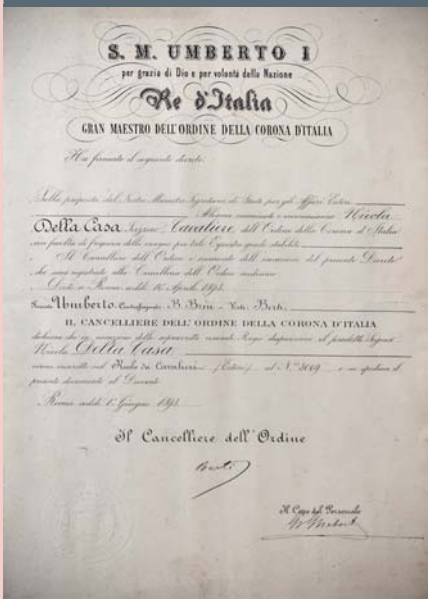 S. M. UMBERTO I
per grazia di Dio e per volontà della Nazione
Re d'Italia
GRAN MAESTRO DELL'ORDINE DELLA CORONA D'ITALIA
Ha firmato il seguente decreto:
Sulla proposta del Nostro Ministro Segretario di Stato per gli Affari Esteri
Abbiamo nominato e nominiamo Nicola
Della Casa Cavaliere dell'Ordine della Corona d'Italia
con facoltà di fregiarsi delle insegne per tale Equestre grado stabilite
Il Cancelliere dell'Ordine è incaricato dell'esecuzione del presente Decreto
che sarà registrato alla Cancelleria dell'Ordine medesimo
Dato a Roma addì 16 Aprile
Firmato Umberto Controfirmato B. Brin - Visto Berti
IL CANCELLIERE DELL'ORDINE DELLA CORONA D'ITALIA
dichiara che in esecuzione delle sopra scritte Regie disposizioni il predetto Signor
Nicola Della Casa
venne inscritto nel Ruolo dei Cavalieri (Esteri) al N.º e ne spedisce il
presente documento al Decorato
Roma addì 1º Giugno
Il Cancelliere dell'Ordine
Berti
Il Capo del Personale